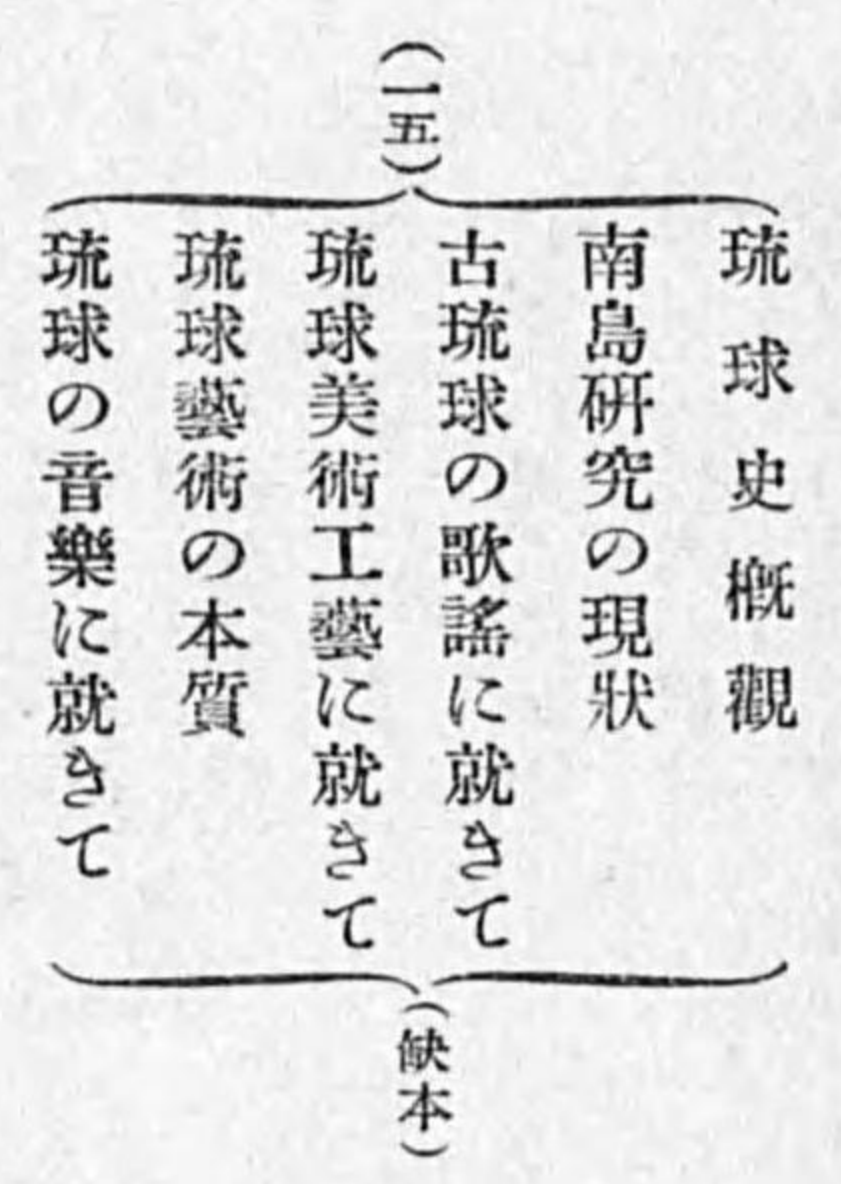 （一五）
琉球史概觀
南島研究の現狀
古琉球の歌謠に就きて
琉球美術工藝に就きて
琉球藝術の本質
琉球の音樂に就きて
（缺本）